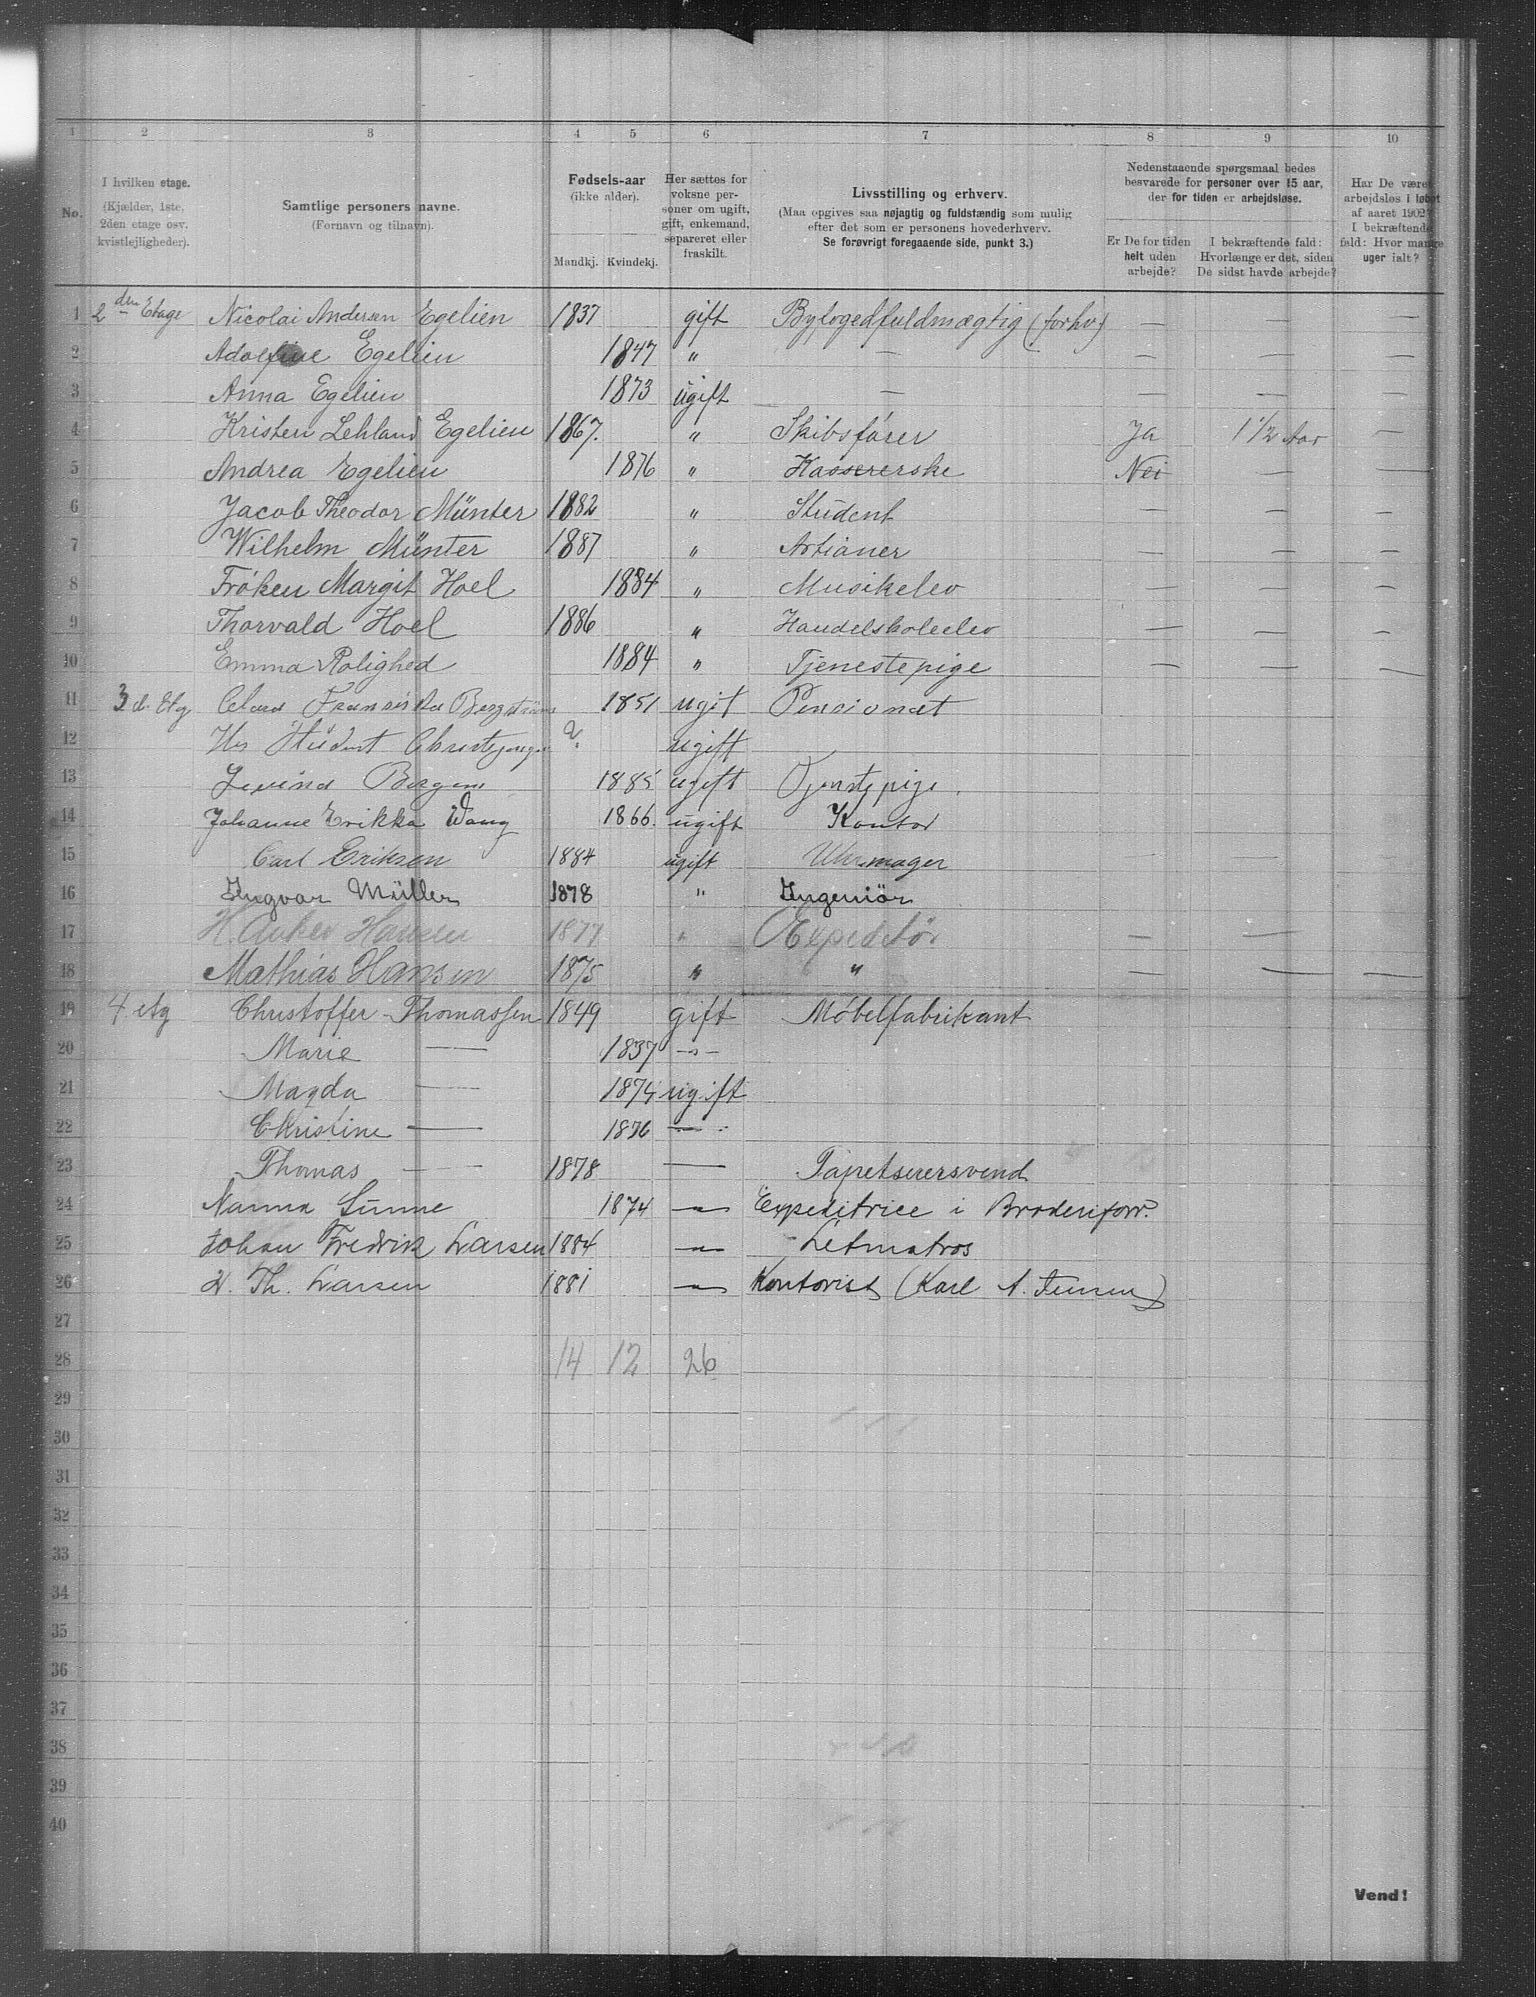 1 2 3 4 5 6 7 8 9 10
No. I hvilken etage. (Kjælder, 1ste, 2den etage osv. kvistlejligheder).
Samtlige personers navne. (Fornavn og tilnavn).
Fødsels-aar (ikke alder). Mandkj. Kvindekj.
Her sættes for voksne personer om ugift, gift, enkemand, separeret eller fraskilt.
Livsstilling og erhverv. (Maa opgives saa nøjagtig og fuldstændig som mulig efter det som er personens hovederhverv. Se forøvrigt foregaaende side, punkt 3.)
Nedenstaaende spørgsmaal bedes besvarede for personer over 15 aar, der for tiden er arbejdsløse.
Er De for tiden helt uden arbejde?
I bekræftende fald: Hvorlænge er det, siden De sidst havde arbejde?
Har De været arbejdsløs i løbet af aaret 1902? I bekræftende fald: Hvor mange uger ialt?
1 2den Etage Nicolai Andersen Egelien 1837 gift Byfogedfuldmægtig (forhv) — — —
2 Adolfine Egelien 1847 " — — — —
3 Anna Egelien 1873 ugift — — — —
4 Kristen Lehland Egelien 1867. " Skibsfører Ja 1 1/2 Aar —
5 Andrea Egelien 1876 " Kassererske Nei — —
6 Jacob Theodor Münter 1882 " Student — — —
7 Wilhelm Münter 1887 " Artianer — — —
8 Frøken Margit Hoel 1884 " Musikelev — — —
9 Thorvald Hoel 1886 " Handelskoleelev — — —
10 Emma Rolighed 1884 " Tjenestepige — — —
11 3 d. Etg 1851 ugit Pensionat
12 Hr Student ? ugift
13 Bergem 1885 ugift Tjenstepige.
14 Johanne Erikka Wang 1866. ugift Kontor
15 Carl Eriksen 1884 ugift Uhrmager
16 Ingvar Müller 1878 " Ingeniør
17 H. Anker Hansen 1877 " Expeditør — —
18 Mathias Hansen 1875 " " — — —
19 4 etg Christoffer Thomassen 1849 gift Møbelfabrikant
20 Marie — 1837 -"-
21 Magda — 1874 ugift
22 Christine — 1876 — "
23 Thomas — 1878 — Tapetserersvend
24 Nanna Sunne 1874 — Expeditrice i Broderiforr.
25 Johan Fredrik Larsen 1884 — Letmatros
26 Th. Larsen 1881 — Kontorist (Karl A. Jensen)
27
28 14 12 26
29
30
31
32
33
34
35
36
37
38
39
40
Vend!